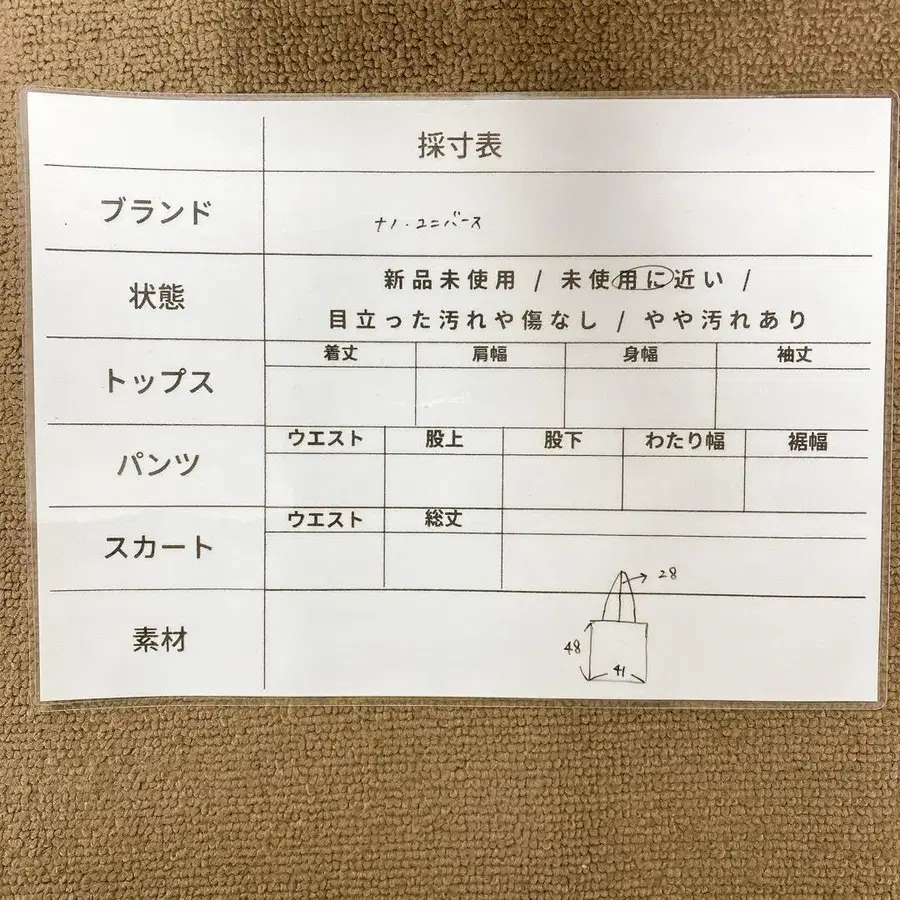 採寸表
ブランド
ナノ・ユニバース
状態
新品未使用 / 未使用に近い /
目立った汚れや傷なし / やや汚れあり
トップス
着丈 肩幅 身幅 袖丈
パンツ
ウエスト 股上 股下 わたり幅 裾幅
スカート
ウエスト 総丈
素材
28
48
41